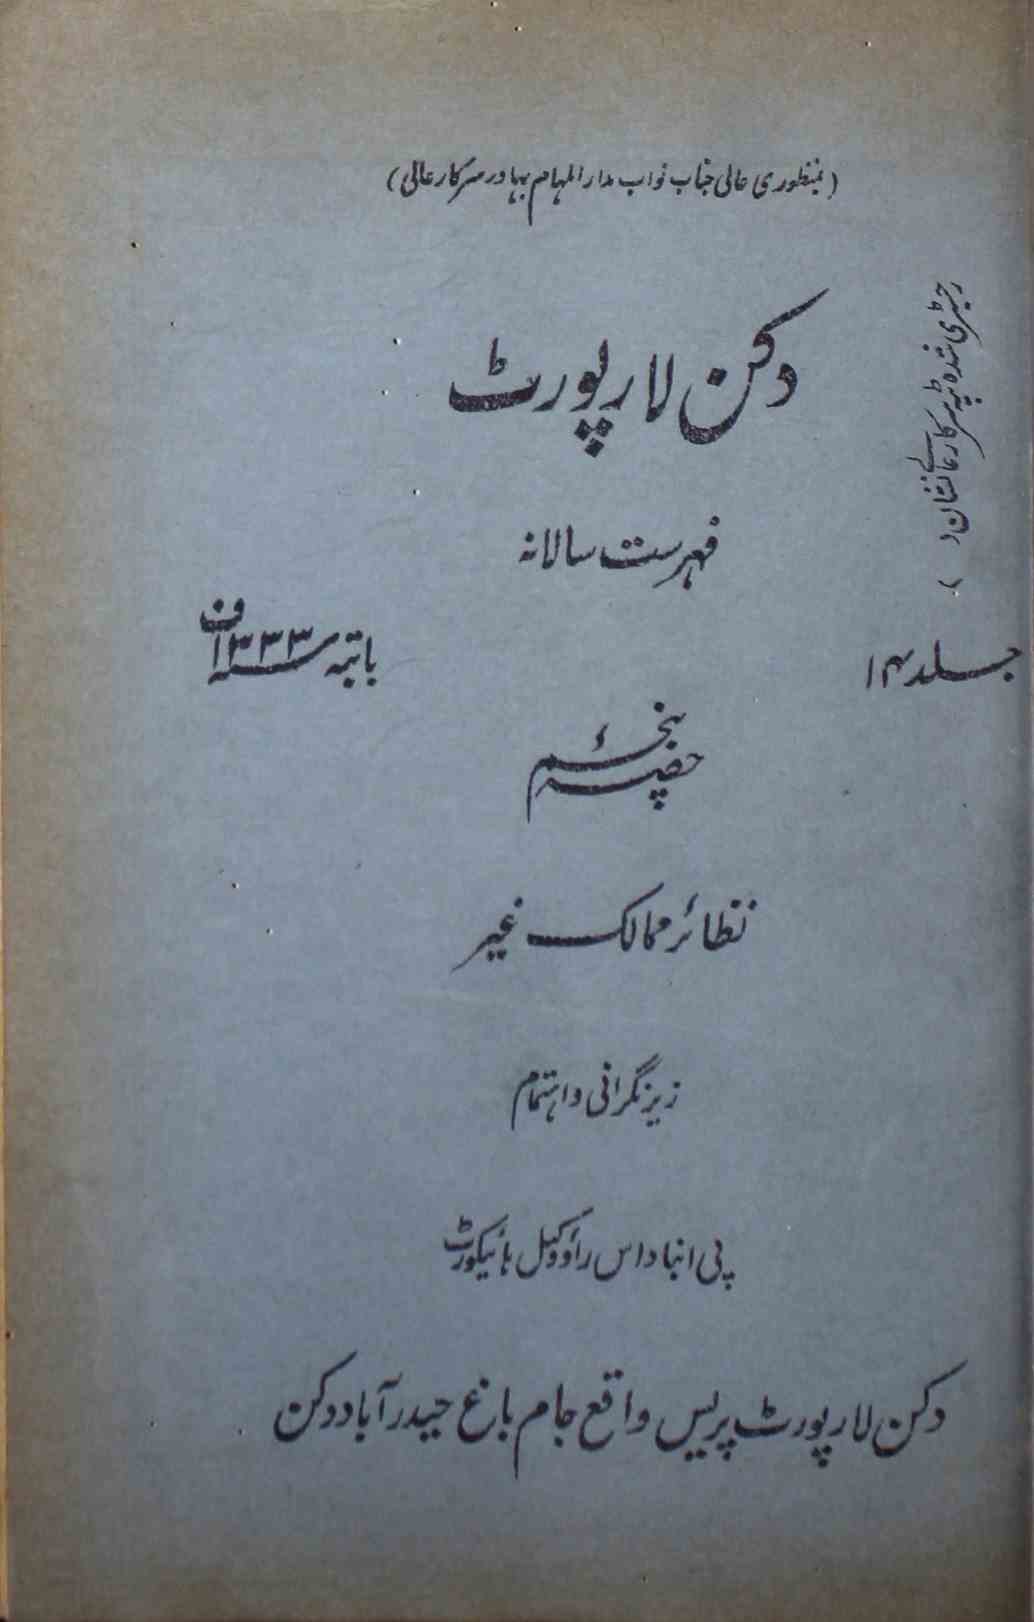 (بمنظوری عالی جناب نواب مدار المہام بہادر سرکار عالی)
دکن لا رپورٹ
رجسٹری شدہ ٹپہ سرکار عالی نشان ( )
فہرست سالانہ
جلد ۱۴
بابتہ ۱۳۳۳ ف
حصہ پنجم
نظائر ممالک غیر
زیر نگرانی واہتمام
پی انباداس راؤ وکیل ہائیکورٹ
دکن لا رپورٹ پریس واقع جام باغ حیدرآباد دکن